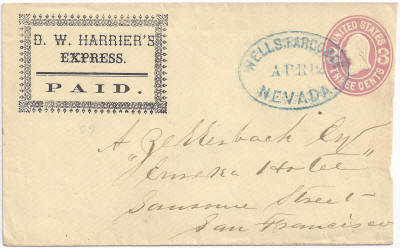 D. W. HARRIER'S
EXPRESS.
PAID.
WELLS, FARGO
APR 12
NEVADA
UNITED STATES
3 3
THREE CENTS
A Zellerbach Esq
Hotel"
Sansome Street
San Francisco